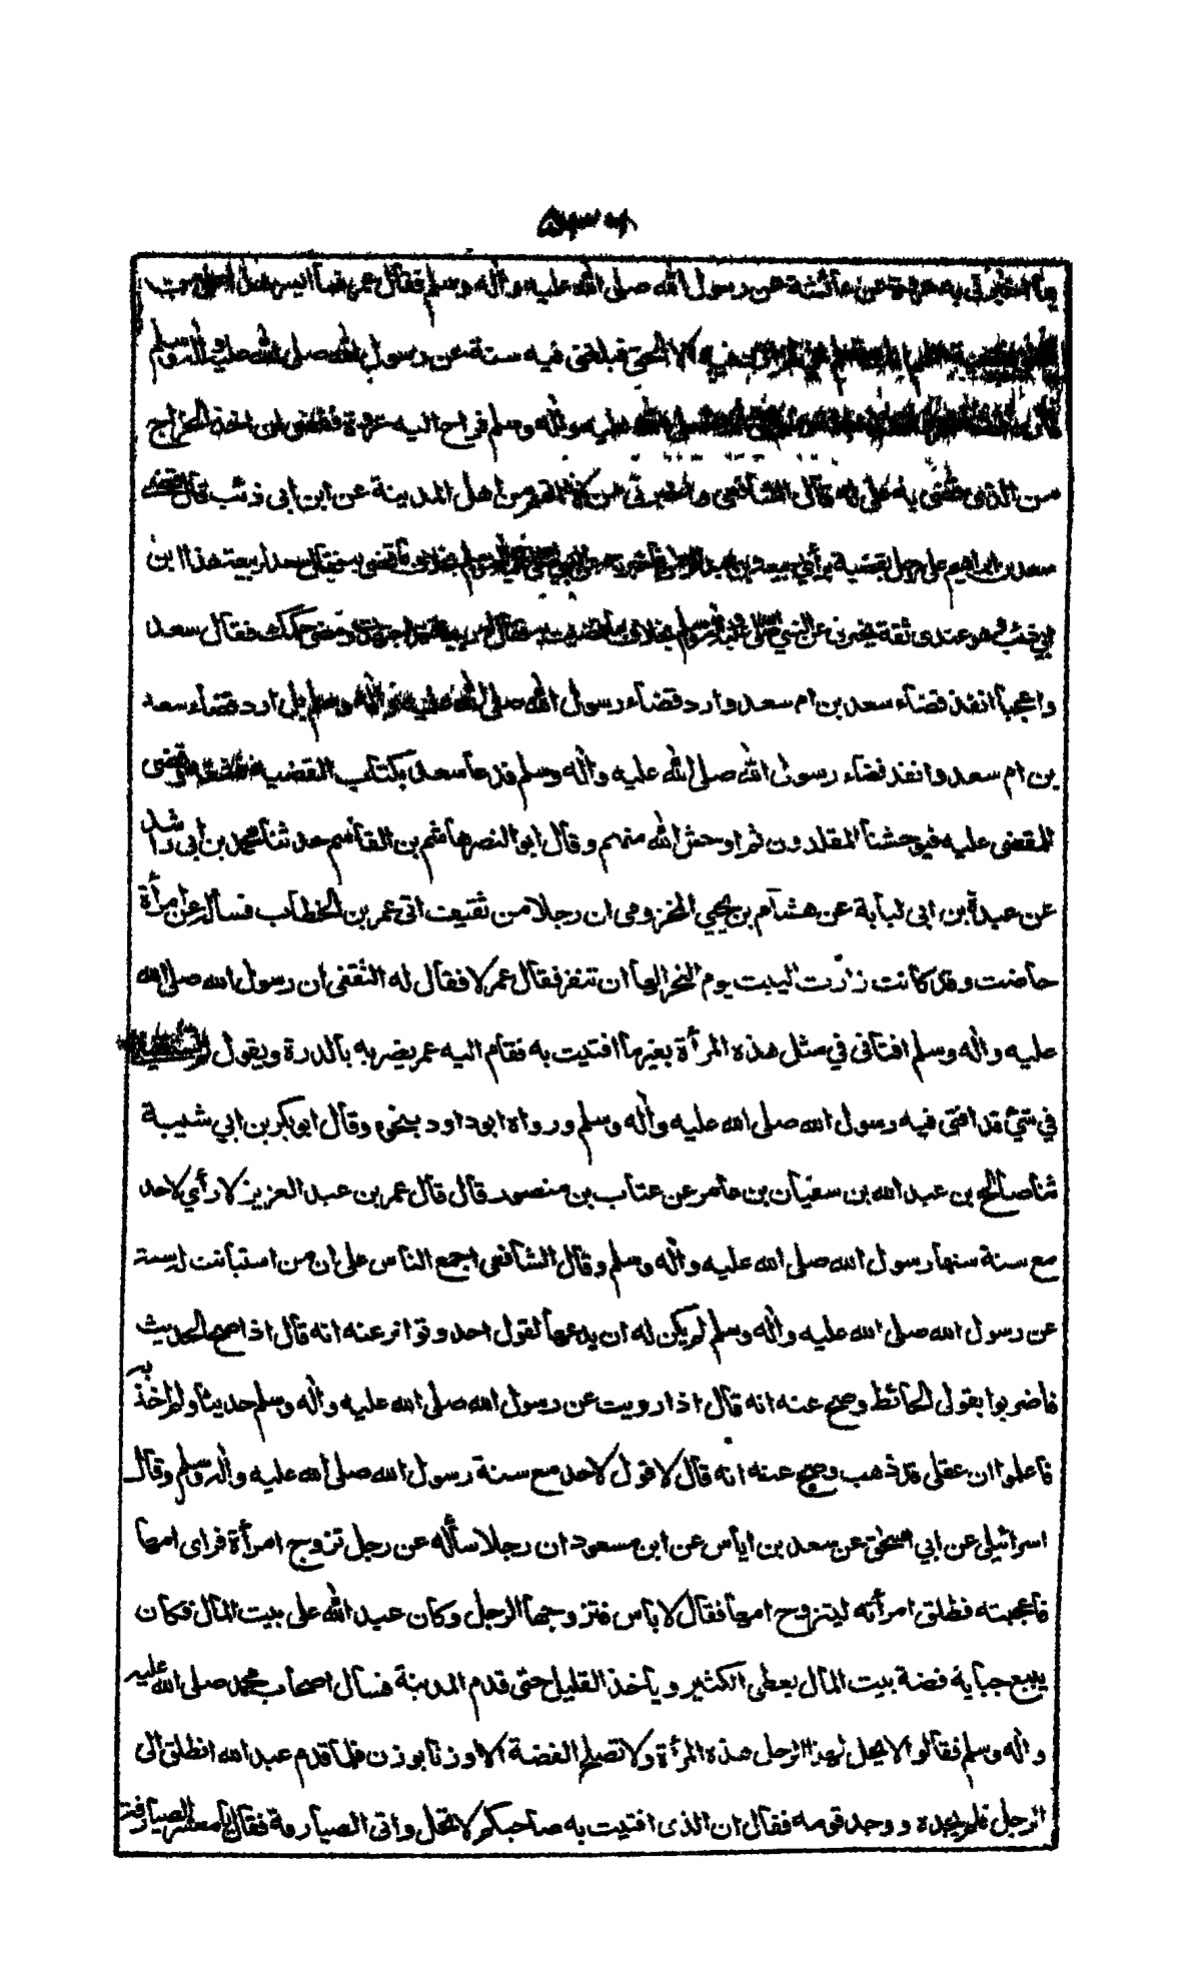 بما اخبرني به عروة عن عائشة عن رسول الله صلى الله عليه واله وسلم فقال عمر فما ايسر هذا
الا الحق فبلغتني فيه سنة عن رسول الله صلى الله عليه واله وسلم
عليه واله وسلم فراح اليه عروة فقضى ان اخذ الخراج
من الذي قضى به علي له قال الشافعي واخبرني من لا اتهم من اهل المدينة عن ابن ابي ذئب قال قضى
سعد بن ابراهيم على رجل بقضية برأي ربيعة بن بخلاف ما قضى به فقال سعد لربيعة هذا ابن
ابي ذئب وهو عندي ثقة يخبرني عن النبي صلى الله عليه واله وسلم بخلاف ما قضيت به فقال له ربيعة قد اجتهدت ومضى حكمك فقال سعد
واعجبا انفذ قضاء سعد بن ام سعد وارد قضاء رسول الله صلى الله عليه واله وسلم بل ارد قضاء سعد
بن ام سعد وانفذ قضاء رسول الله صلى الله عليه واله وسلم فدعا سعد بكتاب القضية فشقه وقضى
للمقضى عليه فيوحشنا المقلدون ثم اوحش الله منهم وقال ابو النصر هاشم بن القاسم حدثنا محمد بن ابي راشد
عن عبدة بن ابي لبابة عن هشام بن يحيي المخزومى ان رجلا من ثقيف اتى عمر بن الخطاب فسأله عن امرأة
حاضت وقد كانت زارت البيت يوم النحر الها ان تنفر فقال عمر لا فقال له الثقفي ان رسول الله صلى الله
عليه واله وسلم افتاني في مثل هذه المرأة بغير ما افتيت به فقام اليه عمر يضربه بالدرة ويقول
في شئ قد افتى فيه رسول الله صلى الله عليه واله وسلم ورواه ابو داود بنحوه وقال ابو بكر بن ابي شيبة
ثنا صالح بن عبد الله بن سفيان بن عامر عن عتاب بن منصور قال قال عمر بن عبد العزيز لا رأي لاحد
مع سنة سنها رسول الله صلى الله عليه واله وسلم وقال الشافعي اجمع الناس على ان من استبانت له سنة
عن رسول الله صلى الله عليه واله وسلم لم يكن له ان يدعها لقول احد وتواتر عنه انه قال اذا صح الحديث
فاضربوا بقولي الحائط وصح عنه انه قال اذا رويت عن رسول الله صلى الله عليه واله وسلم حديثا ولم اخذ به
فاعلموا ان عقلي قد ذهب وصح عنه انه قال لا قول لاحد مع سنة رسول الله صلى الله عليه واله وسلم وقال
اسرائيل عن ابي اسحق عن سعد بن اياس عن ابن مسعود ان رجلا سأله عن رجل تزوج امرأة فراى امها
فاعجبته فطلق امرأته ليتزوج امها فقال لا باس فتزوجها الرجل وكان عبد الله على بيت المال فكان
يبيع جباية فضة بيت المال يعطي الكثير وياخذ القليل حتى قدم المدينة فسأل اصحاب محمد صلى الله عليه
واله وسلم فقالوا لا يحل لهذا الرجل هذه المرأة ولا تصلح الفضة الا وزنا بوزن فلما قدم عبد الله انطلق الى
الرجل فلم يجده ووجد قومه فقال ان الذي افتيت به صاحبكم لا يحل واتى الصيارفة فقال يا معشر الصيارفة